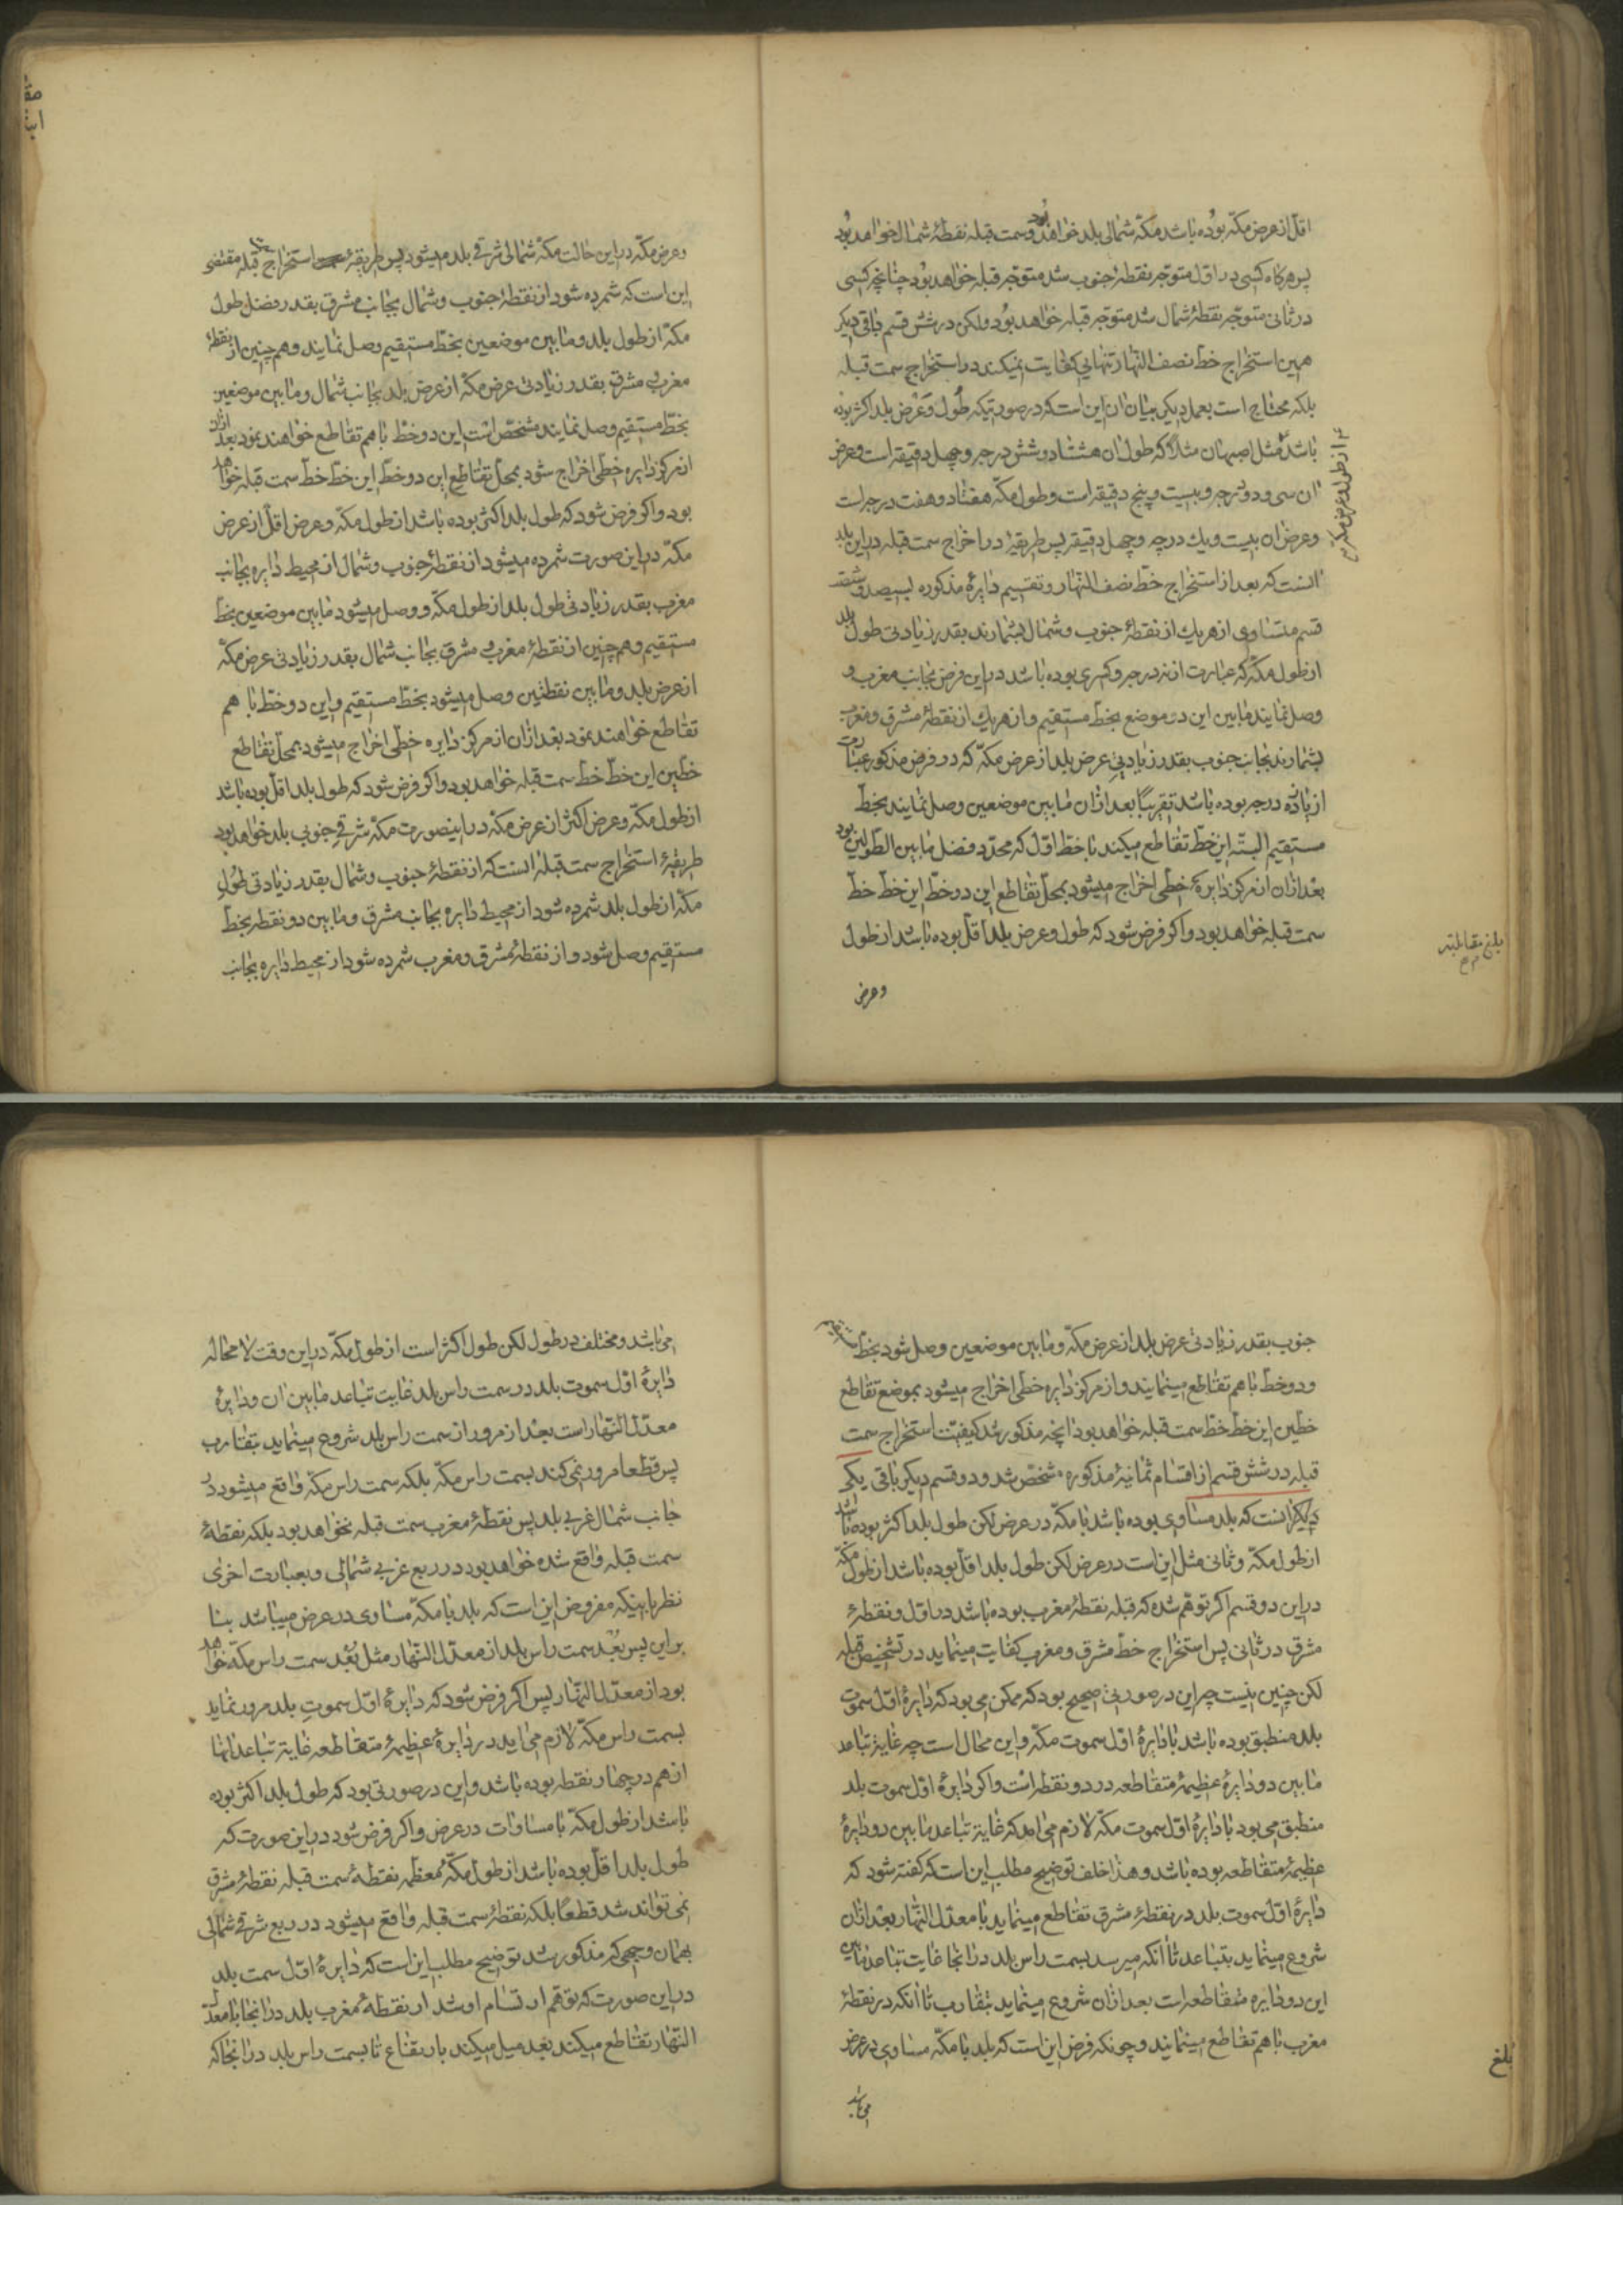 اقل از عرض مکّه بوده باشد مکّه شمالی بلد خواهد بود و سمت قبله نقطهٔ شمال خواهد بود
پس هرکاه کسی در اوّل متوجّه نقطهٔ جنوب شد متوجّه قبله خواهد بود چنانچه کسی
در ثانی متوجّه نقطهٔ شمال شد متوجّه قبله خواهد بود ولکن در شش قسم باقی دیکر
همین استخراج خطّ نصف النّهار تنهایی کفایت نمیکند در استخراج سمت قبله
بلکه محتاج است بعمل دیکر بیان ان این است که در صورتیکه طول و عرض بلد اکثر بوده
باشد مثل اصبهان مثلاً که طول ان هشتاد و شش درجه و چهل دقیقه است و عرض
از طول و عرض مکه
ان سی و دو درجه و بیست و پنج دقیقه است و طول مکّه هفتاد و هفت درجه است
و عرض ان بیست و یك درجه و چهل دقیقه پس طریقهٔ در اخراج سمت قبله در این بلد
انست که بعد از استخراج خطّ نصف النّهار و تقسیم دایرهٔ مذکوره بسیصد و شصت
قسم متساوی از هر یك از نقطهٔ جنوب و شمال بشمارند بقدر زیادتی طول بلد
از طول مکّه که عبارت از نه درجه و کسری بوده باشد در این فرض بجانب مغرب و
وصل نمایند مابین این دو موضع بخطّ مستقیم و از هر یك از نقطهٔ مشرق و مغرب
بشمارند بجانب جنوب بقدر زیادتی عرض بلد از عرض مکّه که در فرض مذکور عبارت
از یازده درجه بوده باشد تقریبًا بعد ازان مابین موضعین وصل نمایند بخطّ
مستقیم البتّه این خطّ تقاطع میکند با خطّ اوّل که محدّد فضل مابین الطّولین بود
بعد ازان از مرکز دایره خطّی اخراج میشود بمحلّ تقاطع این دو خطّ این خطّ خطّ
سمت قبله خواهد بود و اکر فرض شود که طول و عرض بلد اقلّ بوده باشد از طول
بلغ مقابلته
و عرض
و عرض مکّه در این حالت مکّه شمالی شرقی بلد میشود پس طریقهٔ استخراج قبله مقتضی
این است که شمرده شود از نقطهٔ جنوب و شمال بجانب مشرق بقدر فضل طول
مکّه از طول بلد و مابین موضعین بخطّ مستقیم وصل نمایند و هم چنین از نقطهٔ
مغرب و مشرق بقدر زیادتی عرض مکّه از عرض بلد بجانب شمال و مابین موضعین
بخطّ مستقیم وصل نمایند مشخّص است این دو خطّ با هم تقاطع خواهند نمود بعد ازان
از مرکز دایره خطّی اخراج شود بمحلّ تقاطع این دو خطّ این خطّ خطّ سمت قبله خواهد
بود و اکر فرض شود که طول بلد اکثر بوده باشد از طول مکّه و عرض اقلّ از عرض
مکّه در این صورت شمرده میشود از نقطهٔ جنوب و شمال از محیط دایره بجانب
مغرب بقدر زیادتی طول بلد از طول مکّه و وصل میشود مابین موضعین بخطّ
مستقیم و هم چنین از نقطهٔ مغرب و مشرق بجانب شمال بقدر زیادتی عرض مکّه
از عرض بلد و مابین نقطتین وصل میشود بخطّ مستقیم و این دو خطّ با هم
تقاطع خواهند نمود بعد ازان از مرکز دایره خطّی اخراج میشود بمحلّ تقاطع
خطّین این خطّ خطّ سمت قبله خواهد بود و اکر فرض شود که طول بلد اقلّ بوده باشد
از طول مکّه و عرض اکثر از عرض مکّه در اینصورت مکّه شرقی جنوبی بلد خواهد بود
طریقهٔ استخراج سمت قبله انست که از نقطهٔ جنوب و شمال بقدر زیادتی طول
مکّه از طول بلد شمرده شود از محیط دایره بجانب مشرق و مابین دو نقطه بخطّ
مستقیم وصل شود و از نقطهٔ مشرق و مغرب شمرده شود از محیط دایره بجانب
جنوب بقدر زیادتی عرض بلد از عرض مکّه و مابین موضعین وصل شود بخطّ مستقیم
و دو خطّ با هم تقاطع مینمایند و از مرکز دایره خطّی اخراج میشود بموضع تقاطع
خطّین این خطّ خطّ سمت قبله خواهد بود انچه مذکور شد کیفیّت استخراج سمت
قبله در شش قسم از اقسام ثمانیهٔ مذکوره مشخّص شد و دو قسم دیکر باقی یکی
دیکر انست که بلد مساوی بوده باشد با مکّه در عرض لکن طول بلد اکثر بوده باشد
از طول مکّه و ثانی مثل این است در عرض لکن طول بلد اقلّ بوده باشد از طول مکّه
در این دو قسم اکر توهّم شده که قبله نقطهٔ مغرب بوده باشد در اوّل و نقطهٔ
مشرق در ثانی پس استخراج خطّ مشرق و مغرب کفایت مینماید در تشخیص قبله
لکن چنین نیست چه این در صورتی صحیح بود که ممکن می بود که دایرهٔ اوّل سموت
بلد منطبق بوده باشد با دایرهٔ اوّل سموت مکّه و این محال است چه غایة تباعد
مابین دو دایرهٔ عظیمهٔ متقاطعه در دو نقطه است و اکر دایرهٔ اوّل سموت بلد
منطبق می بود با دایرهٔ اوّل سموت مکّه لازم می امد که غایة تباعد مابین دو دایرهٔ
عظیمهٔ متقاطعه بوده باشد و هذا خلف توضیح مطلب این است که کفته شود که
دایرهٔ اوّل سموت بلد در نقطهٔ مشرق تقاطع مینماید با معدّل النّهار بعد ازان
شروع مینماید بتباعد تا انکه میرسد بسمت راس بلد در انجا غایت تباعد مابین
این دو دایره متقاطعه است بعد ازان شروع مینماید بتقارب تا انکه در نقطهٔ
مغرب با هم تقاطع مینمایند و چونکه فرض این است که بلد با مکّه مساوی در عرض
بلغ
می باشد
می باشد و مختلف در طول لکن طول اکثر است از طول مکّه در این وقت لا محاله
دایرهٔ اوّل سموت بلد در سمت راس بلد غایت تباعد مابین ان و دایرهٔ
معدّل النّهار است بعد از مرور از سمت راس بلد شروع مینماید بتقارب
پس قطعا مرور نمی کند بسمت راس مکّه بلکه سمت راس مکّه واقع میشود در
جانب شمال غربی بلد پس نقطهٔ مغرب سمت قبله نخواهد بود بلکه نقطهٔ
سمت قبله واقع شده خواهد بود در ربع غربی شمالی و بعبارت اخری
نظر باینکه مفروض این است که بلد با مکّه مساوی در عرض میباشد بنا
بر این پس بُعد سمت راس بلد از معدّل النّهار مثل بُعد سمت راس مکّه خواهد
بود از معدّل النّهار پس اکر فرض شود که دایرهٔ اوّل سموت بلد مرور نماید
بسمت راس مکّه لازم می اید در دایرهٔ عظیمهٔ متقاطعه غایة تباعد انها
از هم در چهار نقطه بوده باشد و این در صورتی بود که طول بلد اکثر بوده
باشد از طول مکّه با مساوات در عرض و اکر فرض شود در این صورت که
طول بلد اقلّ بوده باشد از طول مکّهٔ معظّمه نقطهٔ سمت قبله نقطهٔ مشرق
نمی تواند شد قطعًا بلکه نقطهٔ سمت قبله واقع میشود در ربع شرقی شمالی
بهمان وجهی که مذکور شد توضیح مطلب این است که دایرهٔ اوّل سمت بلد
در این صورت که توهّم ارتسام او شد از نقطهٔ مغرب بلد در انجا با معدّل
النّهار تقاطع میکند بعد میل میکند بارتفاع تا بسمت راس بلد در انجا که